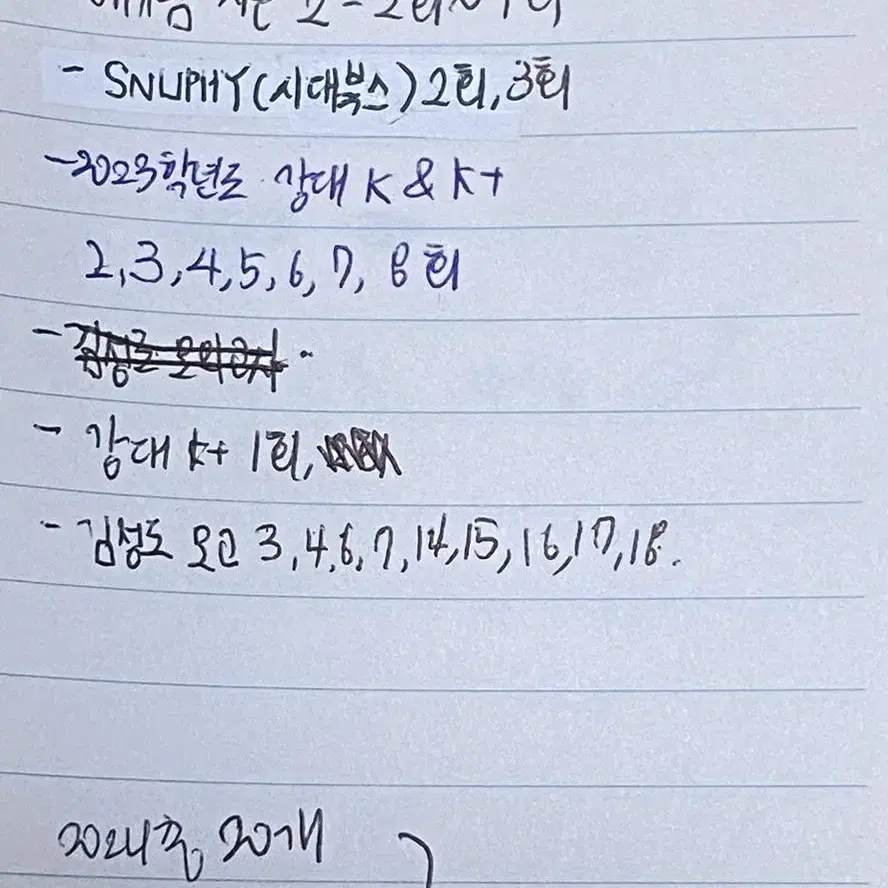 시즌 2 - 2회
- SNUPHY(시대북스) 2회, 3회
- 2023학년도 강대 K & K+
2, 3, 4, 5, 6, 7, 8회
- 김성도 모의고사.
- 강대 K+ 1회,
- 김성도 모고 3, 4, 6, 7, 14, 15, 16, 17, 18.
20개